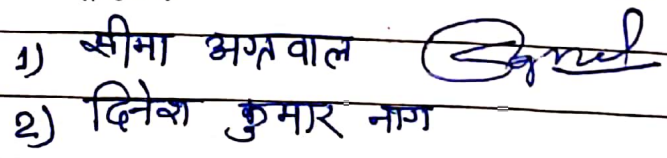 1) सीमा अग्रवाल
2) दिनेश कुमार नाग